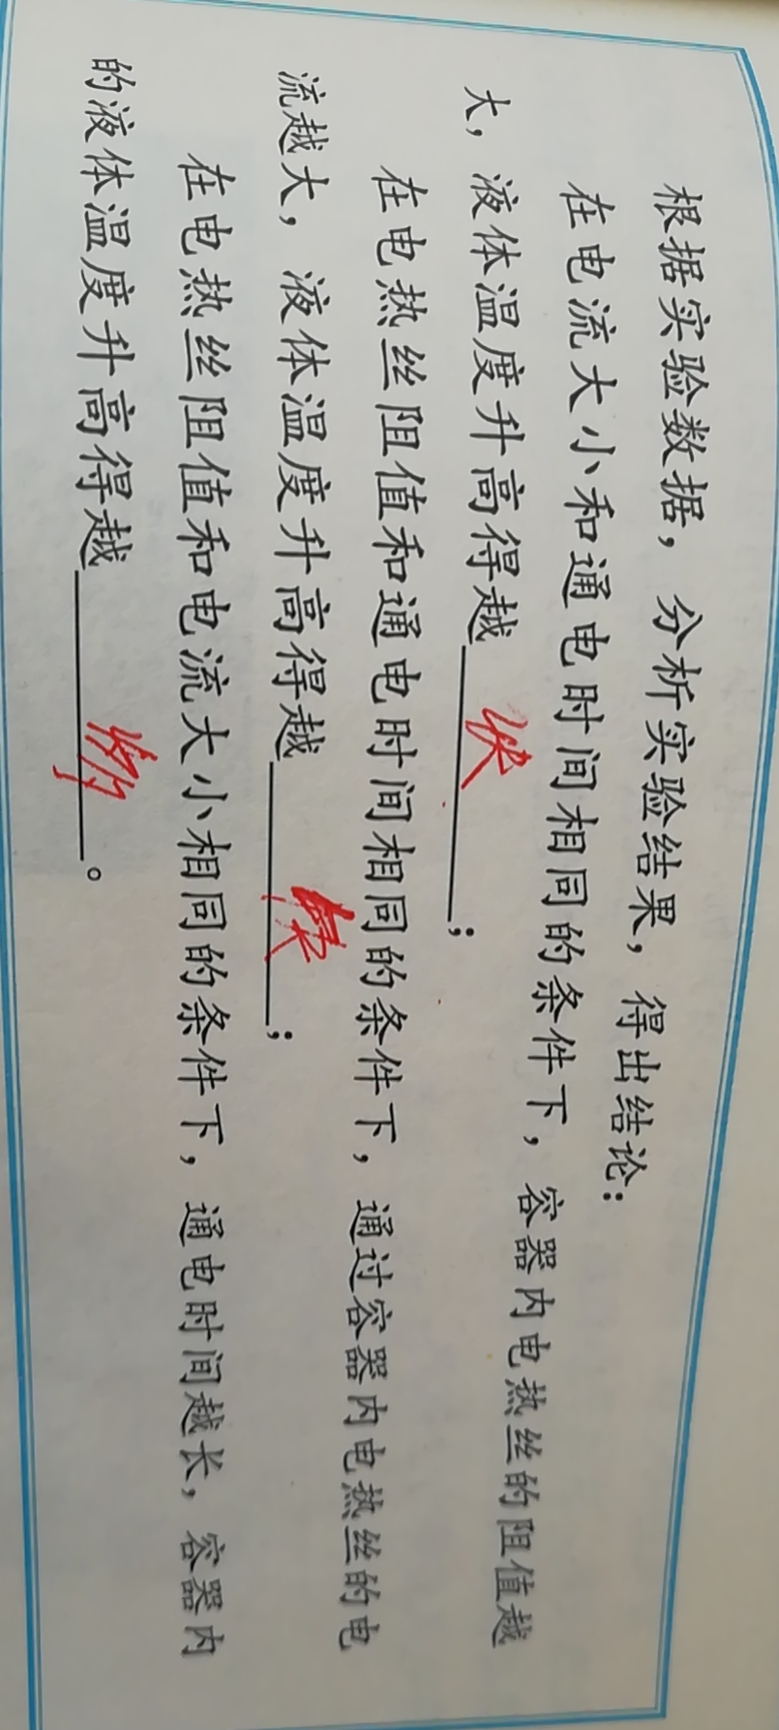 根据实验数据，分析实验结果，得出结论：
在电流大小和通电时间相同的条件下，容器内电热丝的阻值越
大，液体温度升高得越快；
在电热丝阻值和通电时间相同的条件下，通过容器内电热丝的电
流越大，液体温度升高得越快；
在电热丝阻值和电流大小相同的条件下，通电时间越长，容器内
的液体温度升高得越。